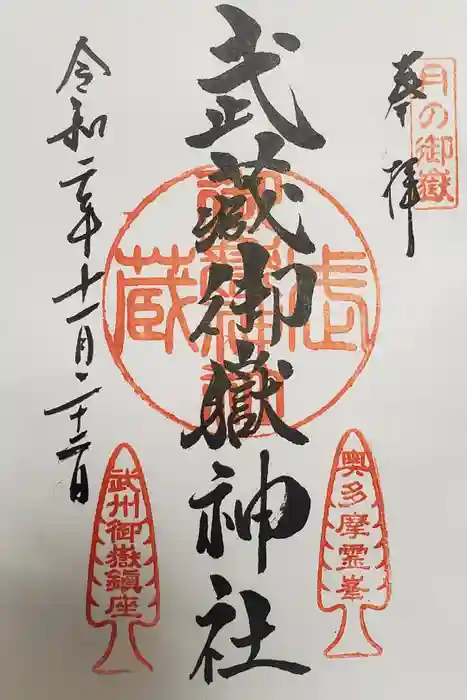 月の御嶽
奉拝
武蔵御嶽神社
令和二年十一月二十二日
奥多摩霊峯
武州御嶽鎮座